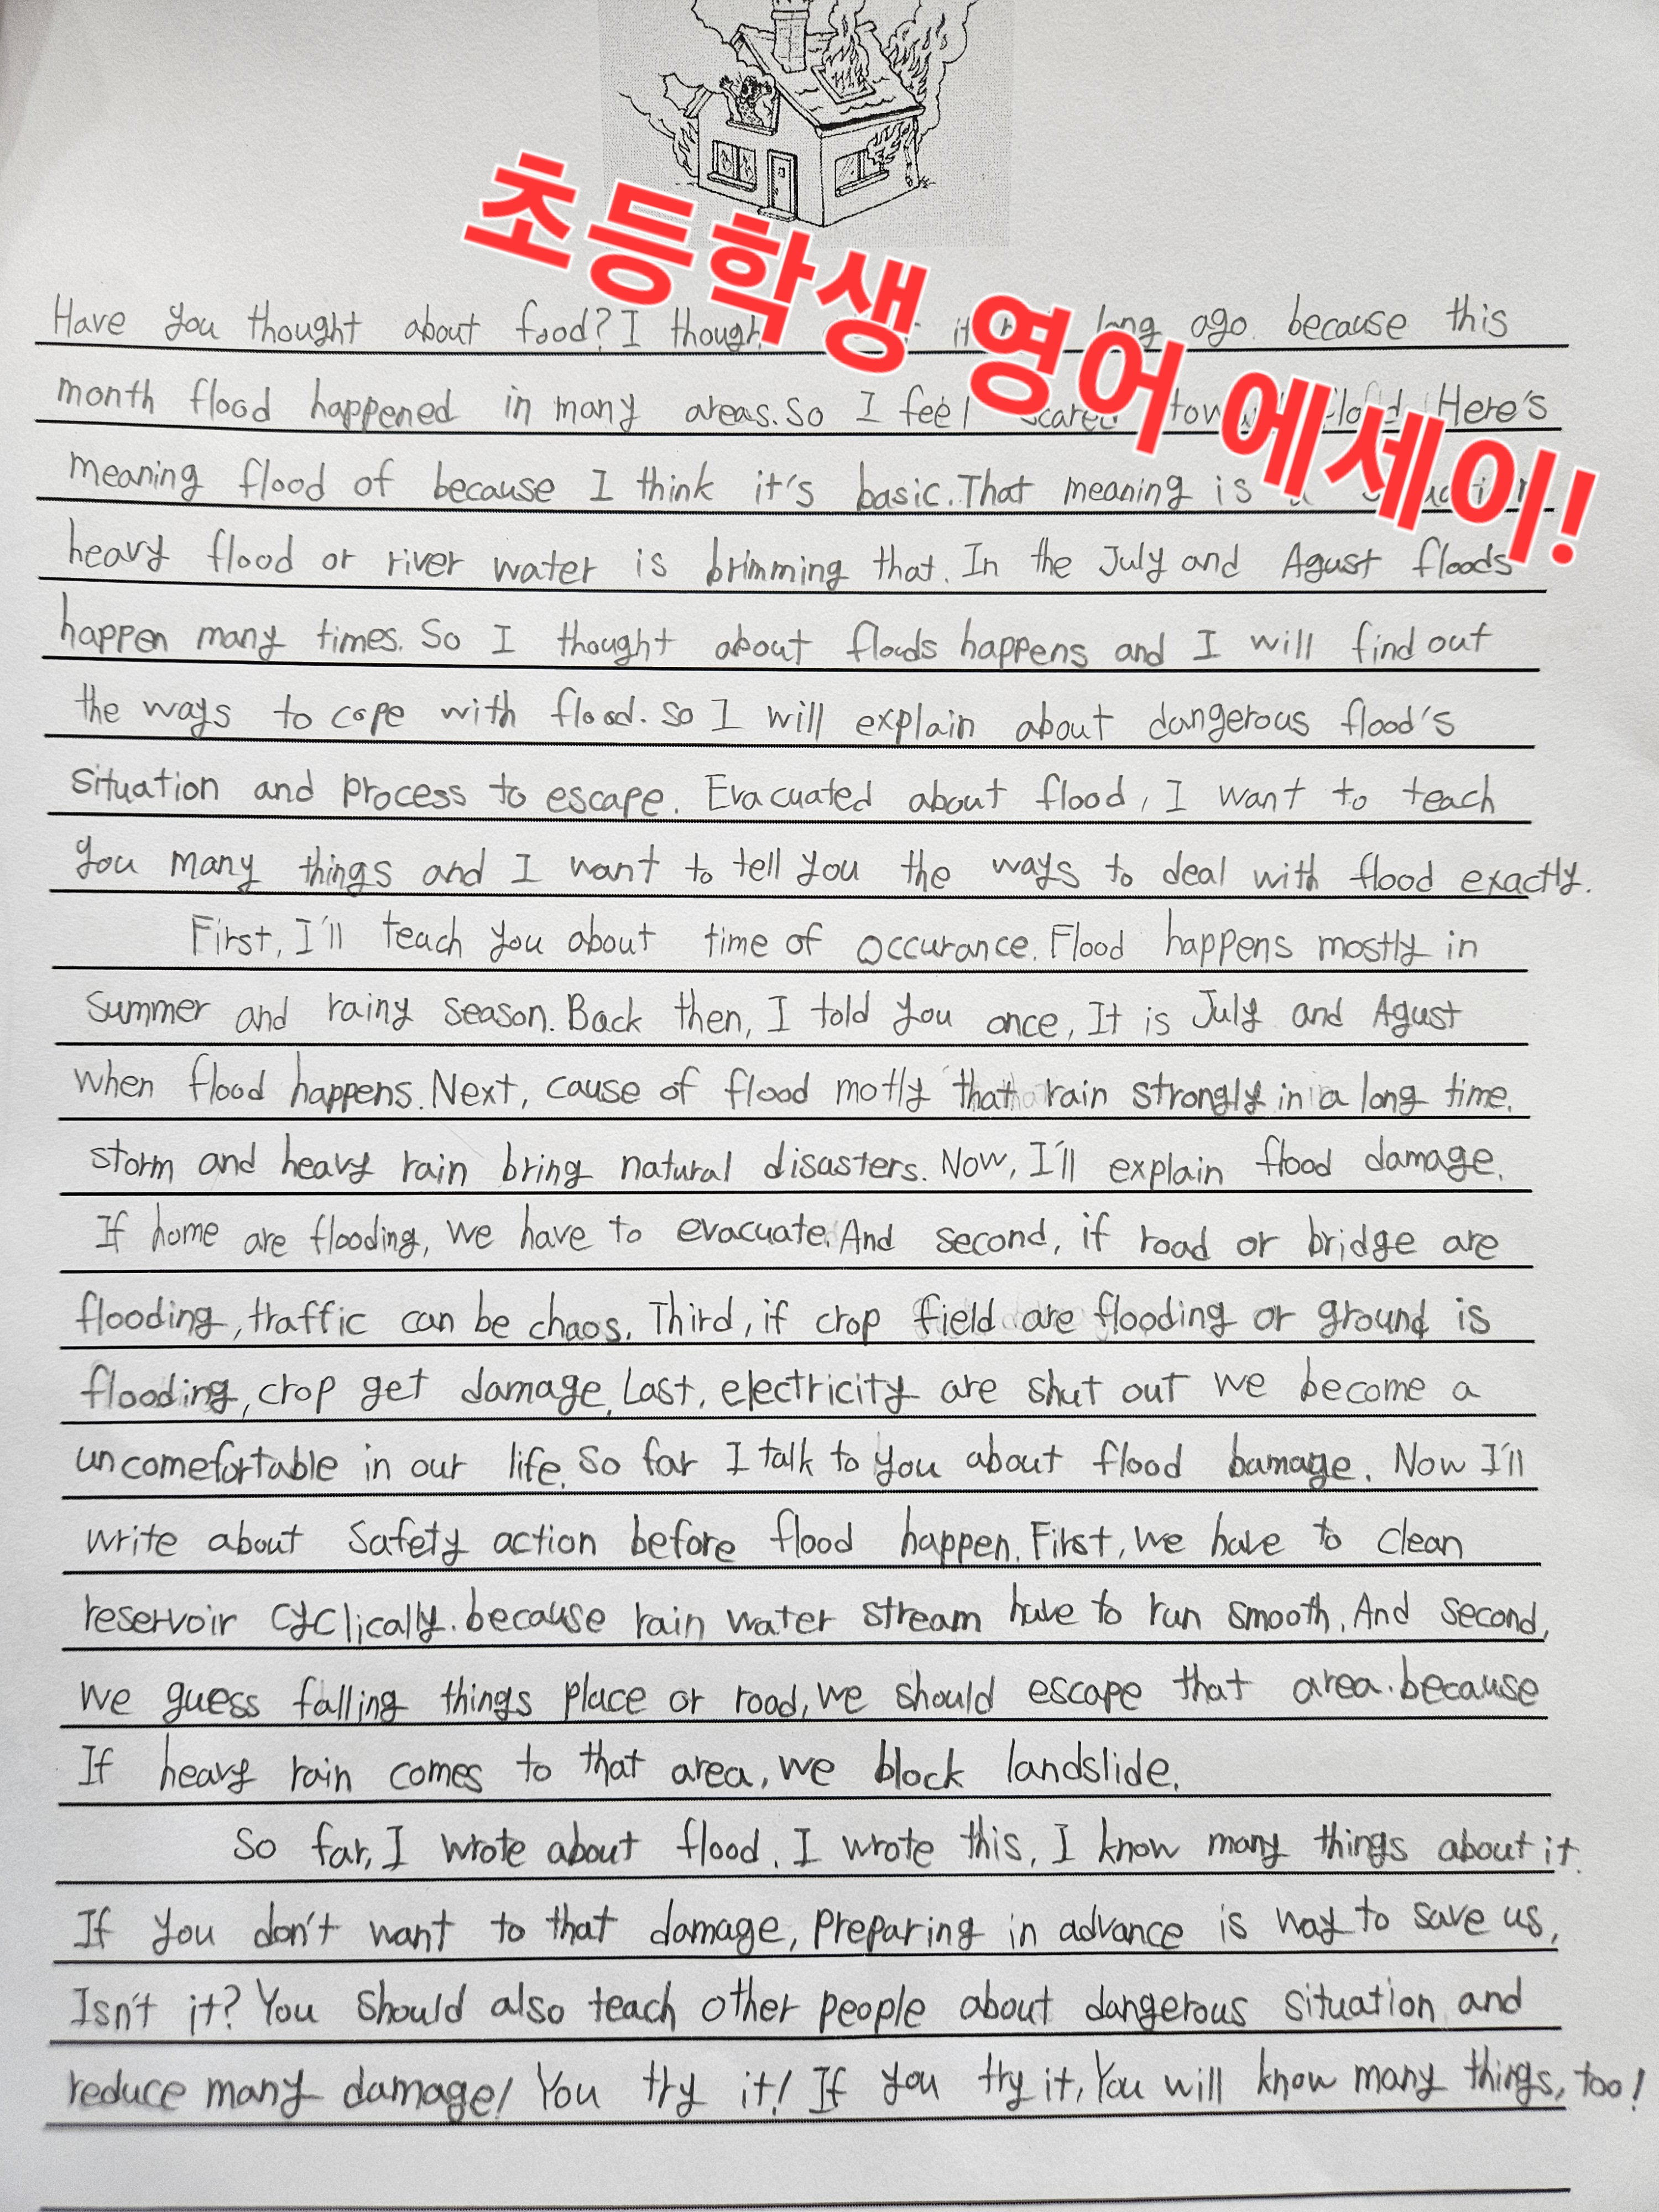 초등학생 영어 에세이!
Have you thought about food? I though it long ago. because this
month flood happened in many areas. So I feel scared flood Here's
meaning flood of because I think it's basic. That meaning is
heavy flood or river water is brimming that. In the July and Agust floods
happen many times. So I thought about floods happens and I will find out
the ways to cope with flood. so I will explain about dangerous flood's
situation and process to escape. Evacuated about flood, I want to teach
you many things and I want to tell you the ways to deal with flood exactly.
First, I'll teach you about time of occurance. Flood happens mostly in
summer and rainy season. Back then, I told you once, It is July and Agust
when flood happens. Next, cause of flood motly that rain strongly in a long time.
storm and heavy rain bring natural disasters. Now, I'll explain flood damage.
If home are flooding, we have to evacuate. And second, if road or bridge are
flooding, traffic can be chaos. Third, if crop field are flooding or ground is
flooding, crop get damage. Last, electricity are shut out we become a
uncomefortable in our life. So far I talk to you about flood bamage. Now I'll
write about safety action before flood happen. First, we have to clean
reservoir cyclically. because rain water stream have to run smooth. And second,
we guess falling things place or road, we should escape that area. because
If heavy rain comes to that area, we block landslide.
So far, I wrote about flood. I wrote this, I know many things about it.
If you don't want to that damage, preparing in advance is way to save us,
Isn't it? You should also teach other people about dangerous situation and
reduce many damage! You try it! If you try it, You will know many things, too!